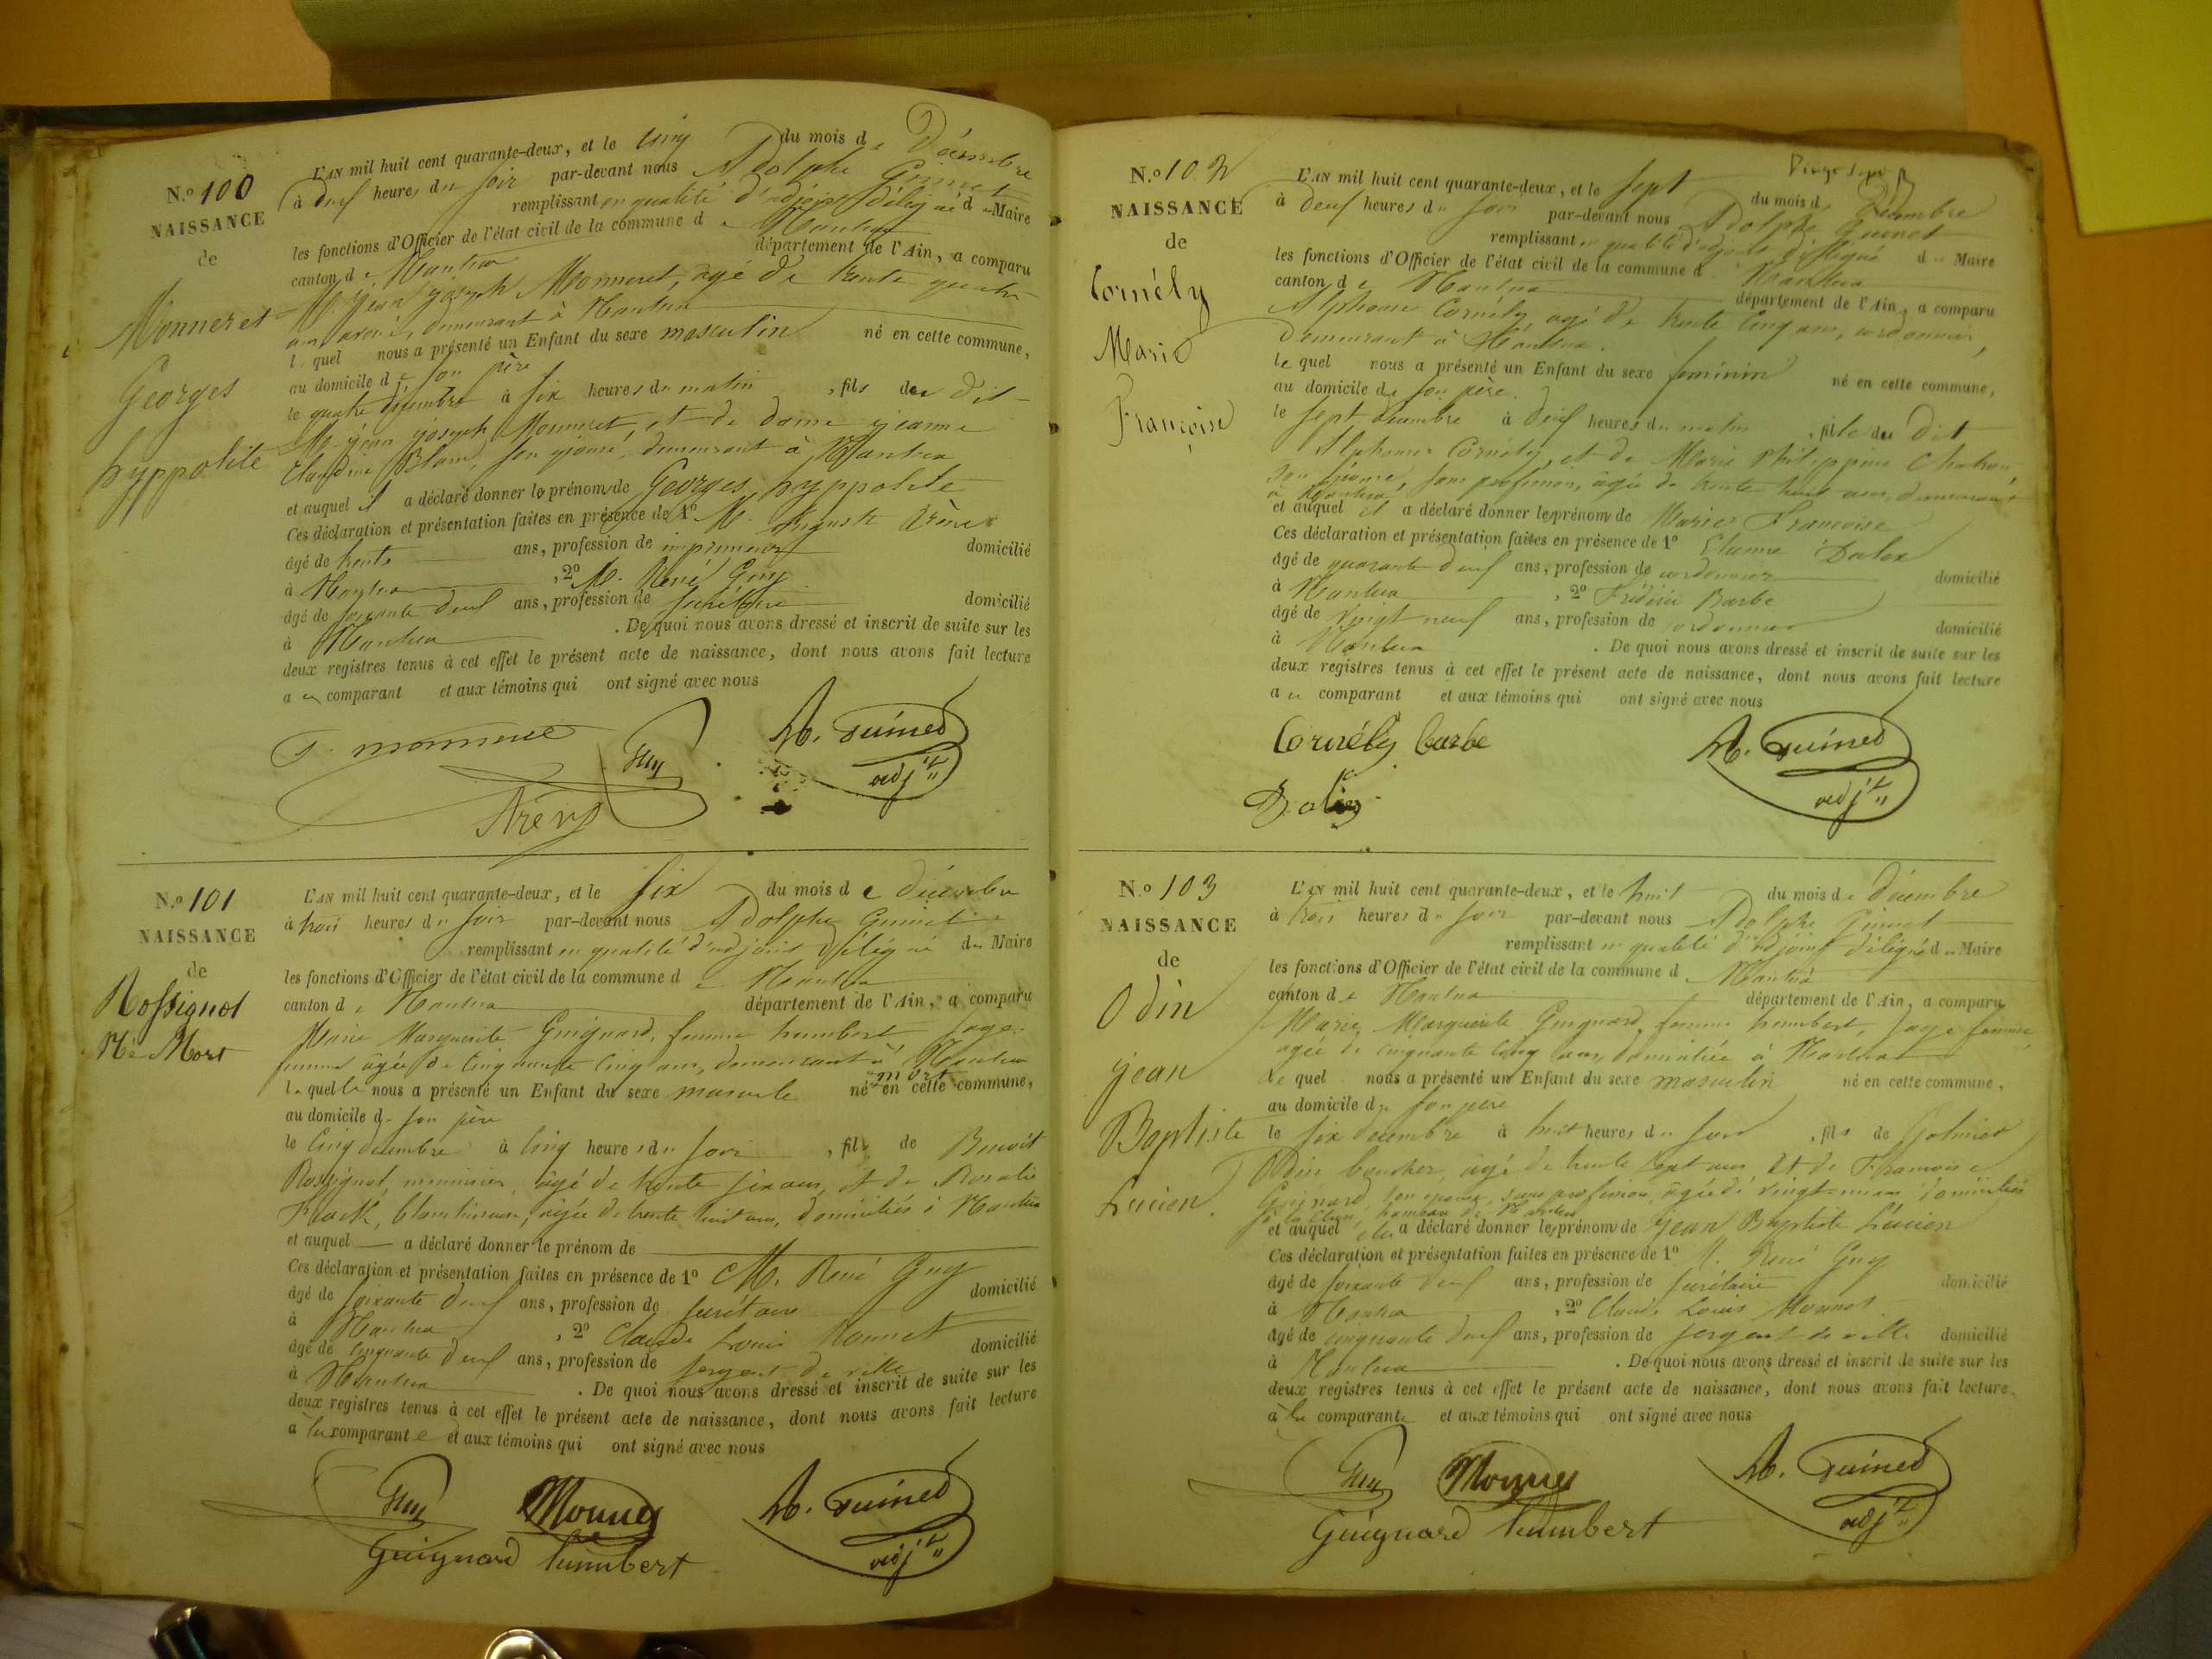 N.º 100
NAISSANCE
de
Monneret
Georges
hyppolite
L'AN mil huit cent quarante-deux, et le cinq du mois de Décembre
à deux heures du soir par-devant nous Adolphe Guinet
remplissant en qualité d'adjoint délégué du Maire
les fonctions d'Officier de l'état civil de la commune de Nantua
canton de Nantua département de l'Ain, a comparu
M. Jean joseph Monneret, agé de trente quatre
ans avoué, demeurant à Nantua
lequel nous a présenté un Enfant du sexe masculin né en cette commune,
au domicile de son père
le quatre décembre à six heures du matin, fils du dit
M. jean joseph Monneret, et de dame jeanne
Claudine Blanc, son épouse, demeurant à Nantua
et auquel il a déclaré donner les prénoms de Georges hyppolite
Ces déclaration et présentation faites en présence de 1º M. Auguste Arène
âgé de trente ans, profession de imprimeur domicilié
à Nantua, 2º M. René Guy
âgé de soixante deux ans, profession de secrétaire domicilié
à Nantua. De quoi nous avons dressé et inscrit de suite sur les
deux registres tenus à cet effet le présent acte de naissance, dont nous avons fait lecture
au comparant et aux témoins qui ont signé avec nous
Guy A. Guinet
adjt
Arène
N.º 101
NAISSANCE
de
Rossignol
Né Mort
L'AN mil huit cent quarante-deux, et le six du mois de décembre
à trois heures du soir par-devant nous Adolphe Guinet
remplissant en qualité d'adjoint délégué du Maire
les fonctions d'Officier de l'état civil de la commune de Nantua
canton de Nantua département de l'Ain, a comparu
Marie Marguerite Guignard, femme humbert sage
femme agée de cinquante cinq ans, demeurant à Nantua
laquelle nous a présenté un Enfant du sexe masculin né mort en cette commune,
au domicile de son père
le cinq décembre à cinq heures du soir, fils de Benoit
Rossignol, menuisier, agé de trente six ans, et de Rosalie
blanchisseuse, agée de trente huit ans, domiciliés à Nantua
et auquel — a déclaré donner le prénom de
Ces déclaration et présentation faites en présence de 1º M. René Guy
âgé de soixante deux ans, profession de secrétaire domicilié
à Nantua, 2º Claude Louis Monnet
âgé de cinquante deux ans, profession de sergent de ville domicilié
à Nantua. De quoi nous avons dressé et inscrit de suite sur les
deux registres tenus à cet effet le présent acte de naissance, dont nous avons fait lecture
à la comparante et aux témoins qui ont signé avec nous
Guy Monnet A. Guinet
adjt
Guignard humbert
N.º 102
NAISSANCE
de
Cornély
Marie
Françoise
L'AN mil huit cent quarante-deux, et le sept du mois de Décembre
à deux heures du soir par-devant nous Adolphe Guinet
remplissant en qualité d'adjoint délégué du Maire
les fonctions d'Officier de l'état civil de la commune de Nantua
canton de Nantua département de l'Ain, a comparu
Alphonse Cornély agé de trente cinq ans, cordonnier,
demeurant à Nantua.
lequel nous a présenté un Enfant du sexe féminin né en cette commune,
au domicile de son père.
le sept décembre à deux heures du matin, fille du dit
Alphonse Cornély, et de Marie Philippine
son épouse, sans profession, agée de trente huit ans, demeurant
à Nantua
et auquel il a déclaré donner les prénoms de Marie Françoise
Ces déclaration et présentation faites en présence de 1º Etienne
âgé de quarante deux ans, profession de cordonnier domicilié
à Nantua, 2º Frédéric Barbe
âgé de vingt neuf ans, profession de cordonnier domicilié
à Nantua. De quoi nous avons dressé et inscrit de suite sur les
deux registres tenus à cet effet le présent acte de naissance, dont nous avons fait lecture
au comparant et aux témoins qui ont signé avec nous
Cornély barbe A. Guinet
adjt
N.º 103
NAISSANCE
de
Odin
jean
Baptiste
Lucien.
L'AN mil huit cent quarante-deux, et le huit du mois de décembre
à trois heures du soir par-devant nous Adolphe Guinet
remplissant en qualité d'adjoint délégué du Maire
les fonctions d'Officier de l'état civil de la commune de Nantua
canton de Nantua département de l'Ain, a comparu
Marie Marguerite Guignard, femme humbert, sage femme
agée de cinquante cinq ans, domiciliée à Nantua
Lequel nous a présenté un Enfant du sexe masculin né en cette commune,
au domicile de son père
le six décembre à huit heures du soir, fils de
Odin boucher, agé de trente sept ans, et de Françoise
Guignard son épouse, sans profession, agée de vingt ans, domiciliés
hameau de Nantua
et auquel elle a déclaré donner les prénoms de jean Baptiste Lucien
Ces déclaration et présentation faites en présence de 1º M. René Guy
âgé de soixante deux ans, profession de secrétaire domicilié
à Nantua, 2º Claude Louis Monnet
âgé de cinquante deux ans, profession de sergent de ville domicilié
à Nantua. De quoi nous avons dressé et inscrit de suite sur les
deux registres tenus à cet effet le présent acte de naissance, dont nous avons fait lecture
à la comparante et aux témoins qui ont signé avec nous
Guy Monnet A. Guinet
adjt
Guignard humbert